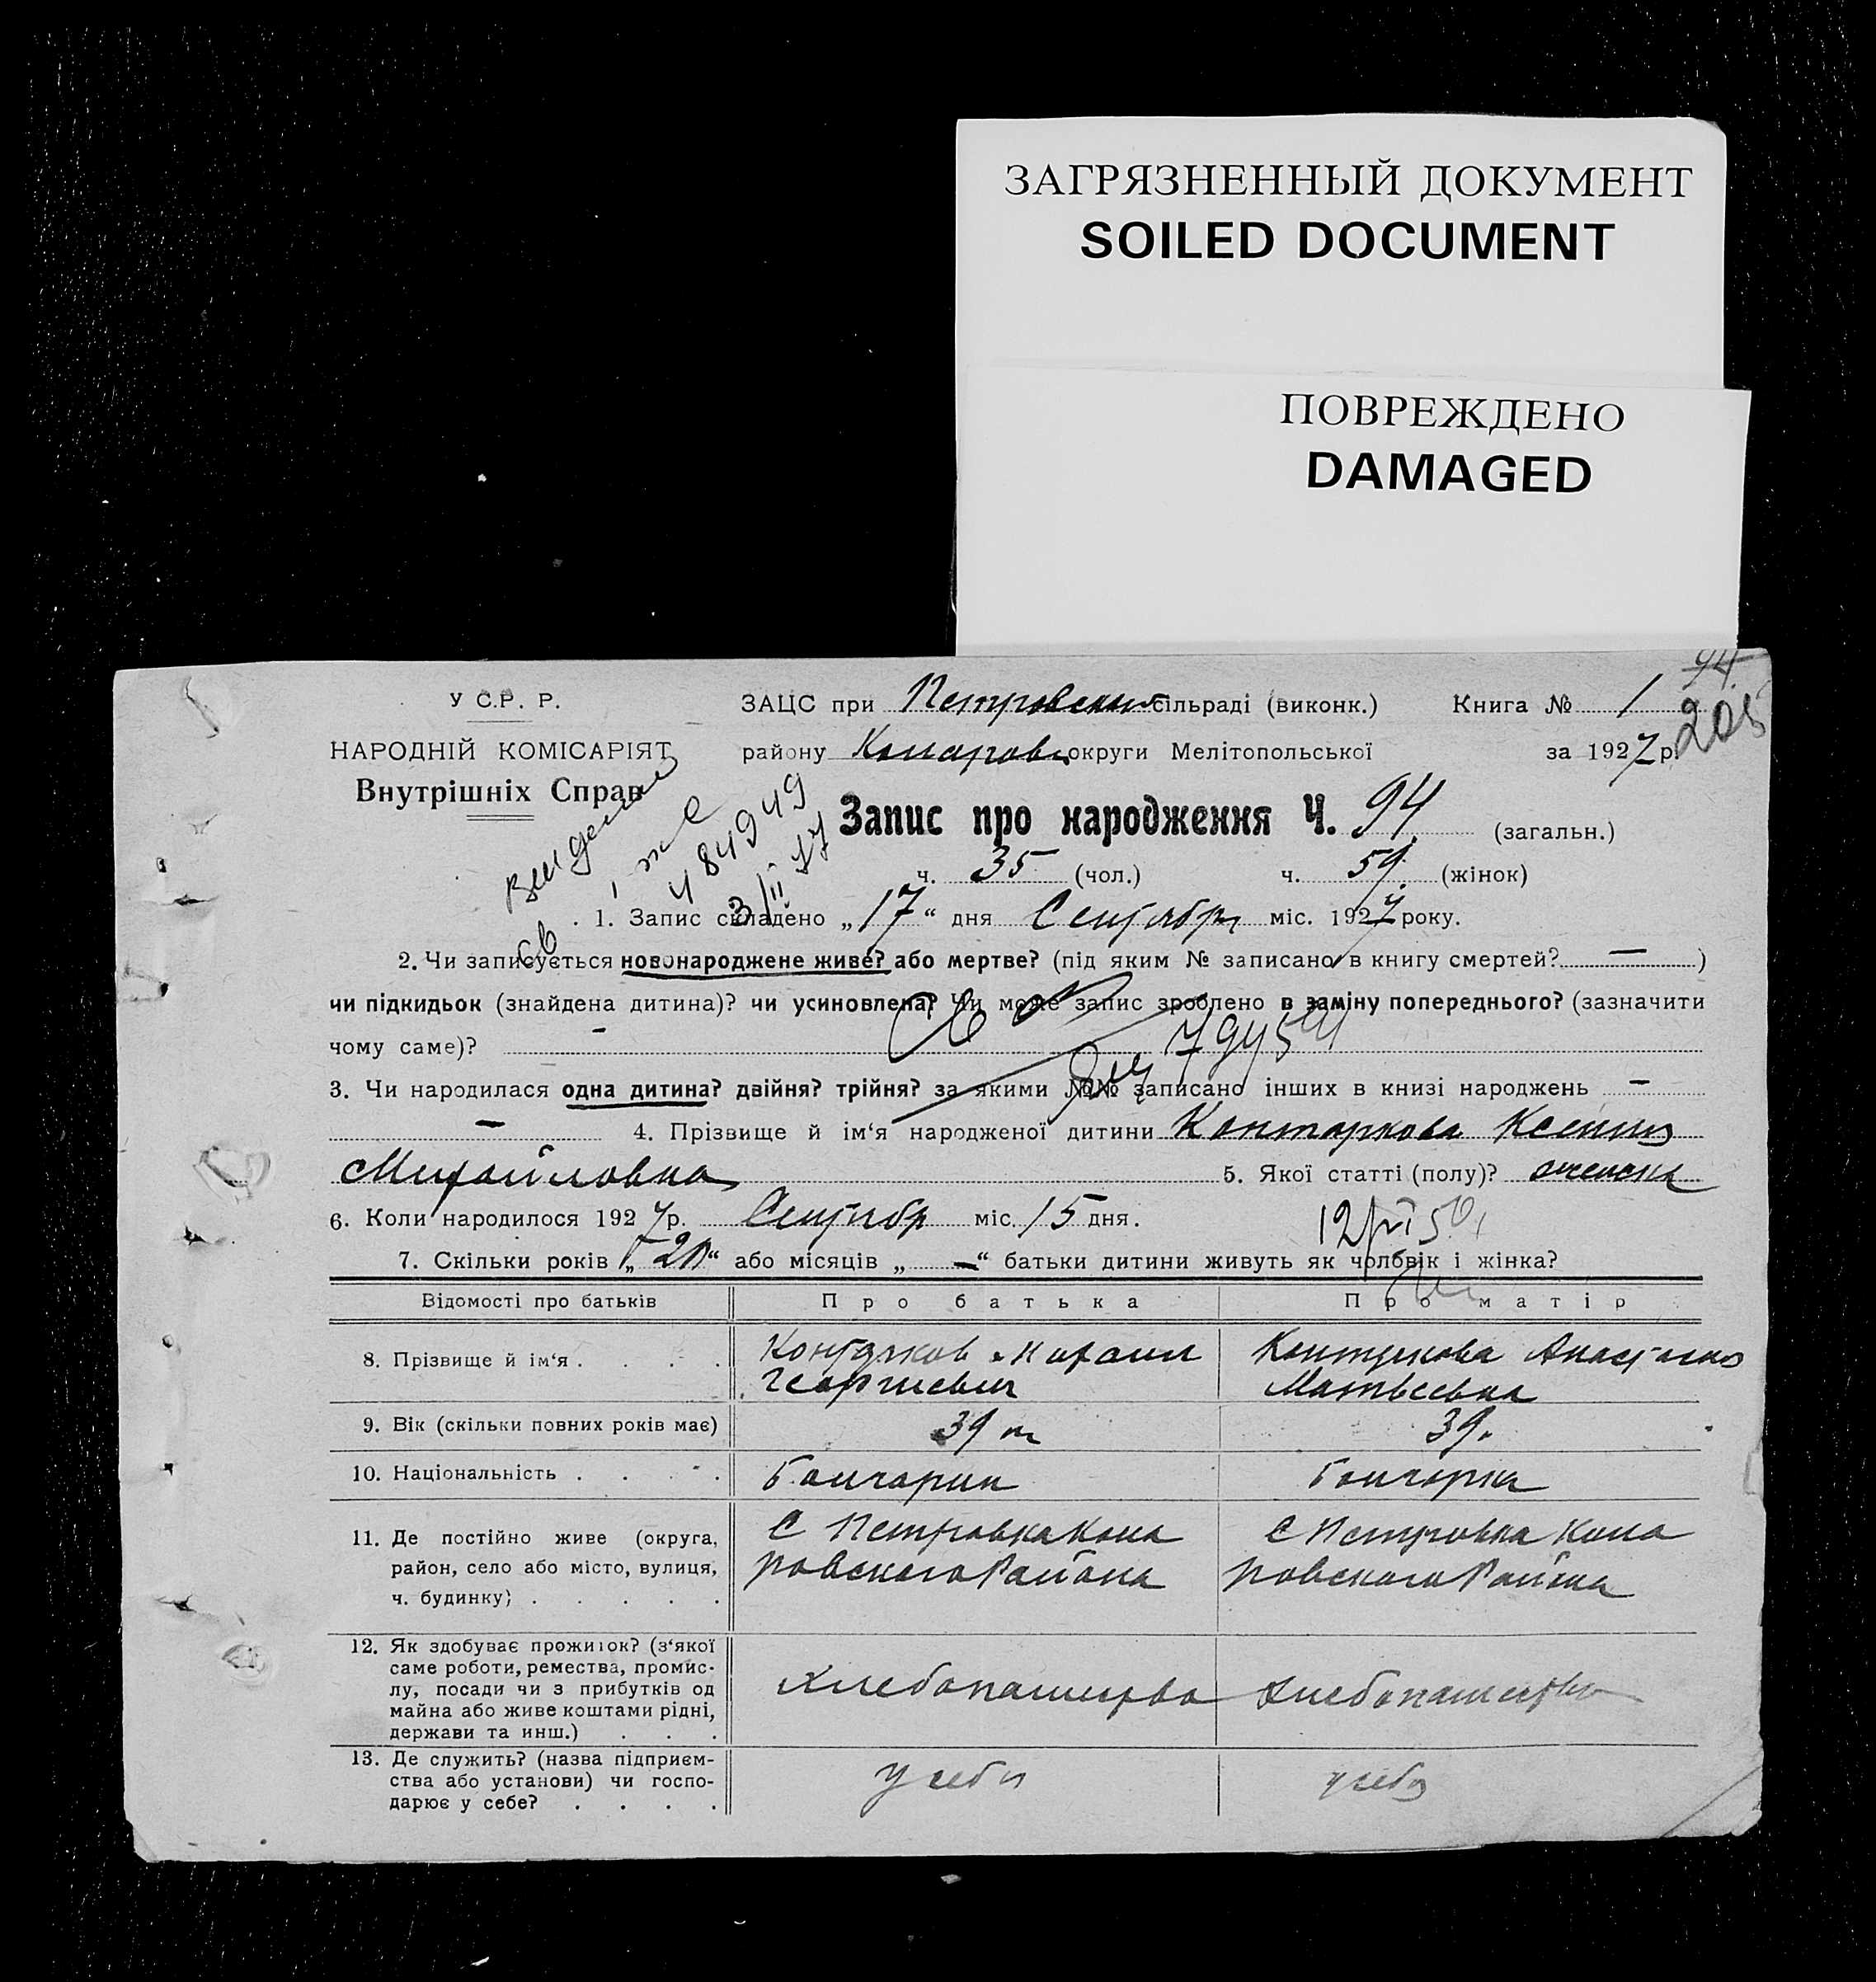 ЗАГРЯЗНЕННЫЙ ДОКУМЕНТ
SOILED DOCUMENT
ПОВРЕЖДЕНО
DAMAGED
94
205
У С.Р. Р.
НАРОДНІЙ КОМІСАРІЯТ
Внутрішніх Справ
ЗАЦС при Петровский сільраді (виконк.) Книга № 1
району Комаров округи Мелітопольської за 1927 р.
Запис про народження Ч. 94 (загальн.)
ч. 35 (чол.) ч. 59 (жінок)
1. Запис складено „17“ дня Сентября міс. 1927 року.
2. Чи записується новонароджене живе? або мертве? (під яким № записано в книгу смертей? — )
чи підкидьок (знайдена дитина)? чи усиновлена? Чи може запис зроблено в заміну попереднього? (зазначити
чому саме)? —
3. Чи народилася одна дитина? двійня? трійня? за якими №№ записано інших в книзі народжень —
— 4. Прізвище й ім‘я народженої дитини Контаркова Ксения
Михайловна 5. Якої статті (полу)? женска
6. Коли народилося 1927 р. Сентябр міс. 15 дня.
7. Скільки років „20“ або місяців „—“ батьки дитини живуть як чоловік і жінка?
Відомості про батьків Про батька Про матір
8. Прізвище й ім‘я . . . . Михаил Георгиевич Анастасия Матвеевна
9. Вік (скільки повних років має) 39 39.
10. Національність . . . . Болгарин Болгарка
11. Де постійно живе (округа, район, село або місто, вулиця, ч. будинку) . . . . . С Петровка Кома ровского Района С Петровка Кома ровского Района
12. Як здобуває прожиток? (з‘якої саме роботи, ремества, промислу, посади чи з прибутків од майна або живе коштами рідні, держави та инш.) . . . Хлебопашество Хлебопашество
13. Де служить? (назва підприємства або установи) чи господарює у себе? . . . . у себя у себя